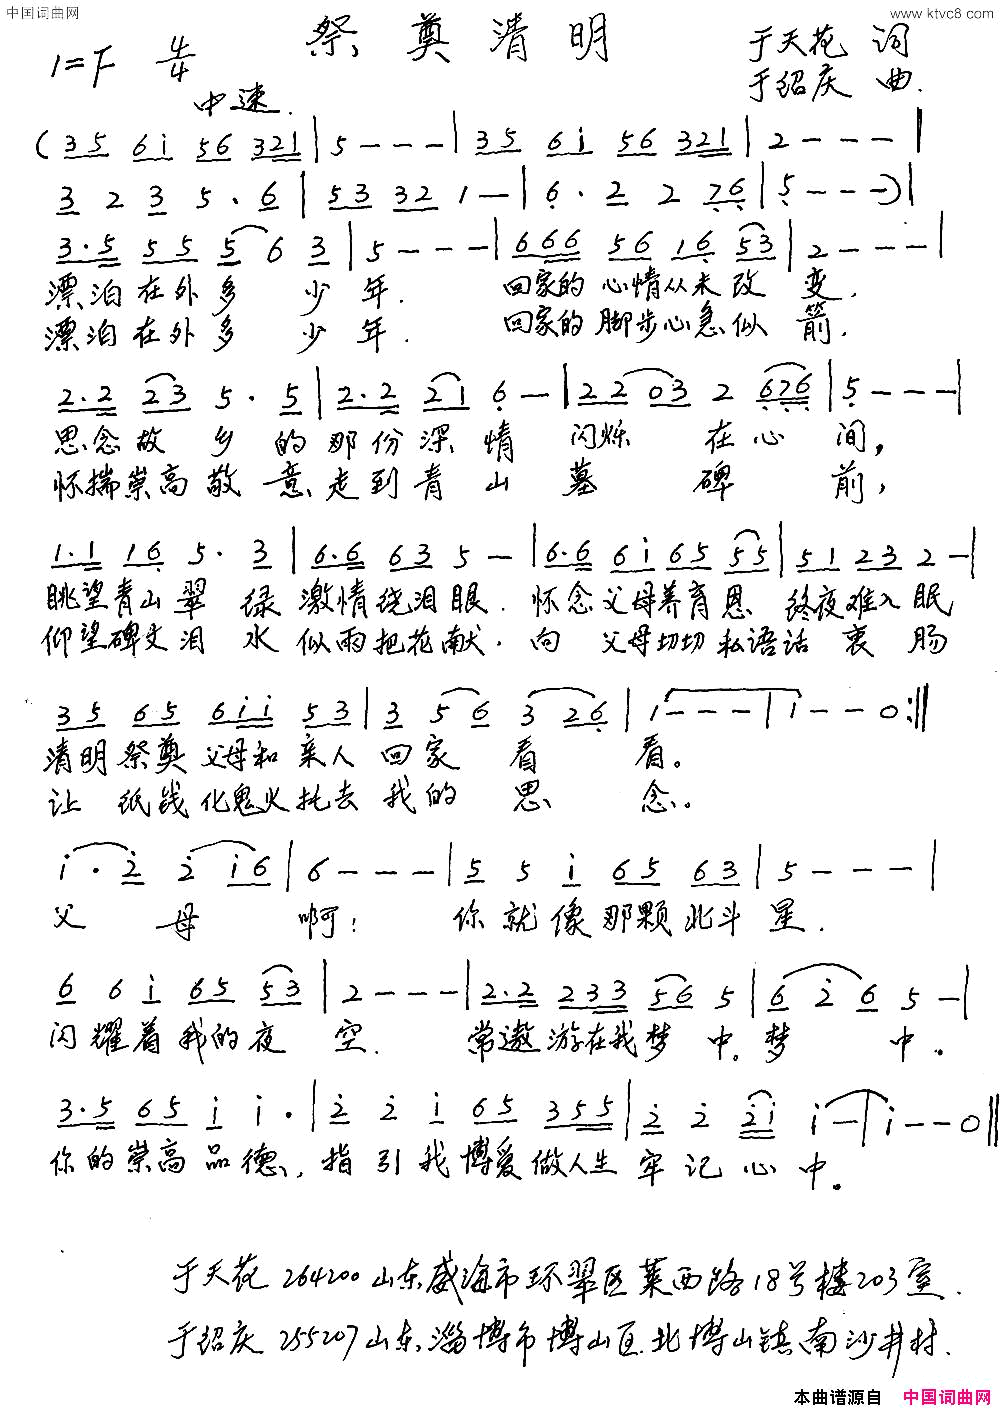 中国词曲网
www.ktvc8.com
祭奠清明
1=F 4/4
于天花 词
于绍庆 曲.
中速.
(3 5 6 i 5 6 3 2 1 | 5 - - - | 3 5 6 i 5 6 3 2 1 | 2 - - - |
3 2 3 5 · 6 | 5 3 3 2 1 - | 6 · 2 2 7 6 | 5 - - -) |
3·5 5 5 5 6 3 | 5 - - - | 6 6 6 5 6 1 6 5 3 | 2 - - - |
漂泊在外多 少 年. 回家的 心情从未 改 变.
漂泊在外多 少 年. 回家的 脚步心急似 箭.
2·2 2 3 5 · 5 | 2·2 2 1 6 - | 2 2 0 3 2 6 7 6 | 5 - - - |
思念故 乡 的那份深 情 闪烁 在心 间,
怀揣崇高敬 意走到青 山 墓 碑 前,
1·1 1 6 5 · 3 | 6·6 6 3 5 - | 6·6 6 i 6 5 5 5 | 5 1 2 3 2 - |
眺望青山翠 绿 激情绕泪眼. 怀念父母养育恩 终夜难入眠
仰望碑文泪 水 似雨把花献. 向 父母切切私语话衷 肠
3 5 6 5 6 i i 5 3 | 3 5 6 3 2 6 | 1 - - - | 1 - - 0 :||
清明祭奠 父母和 亲人 回家 看 看。
让 纸钱化鬼火托去 我的 思 念。
i · 2 2 i 6 | 6 - - - | 5 5 i 6 5 6 3 | 5 - - - |
父 母 啊! 你就像那颗北斗 星.
6 6 i 6 5 5 3 | 2 - - - | 2·2 2 3 3 5 6 5 | 6 2 6 5 - |
闪耀着我的夜 空. 常遨游在我梦 中。梦 中.
3·5 6 5 i i · | 2 2 i 6 5 3 5 5 | 2 2 2 i i - | i - - 0 ||
你的崇高品德, 指引我博爱做人生 牢记心中.
于天花 264200 山东威海市环翠区莱西路18号楼203室.
于绍庆 255207 山东淄博市博山区北博山镇南沙井村.
本曲谱源自 中国词曲网